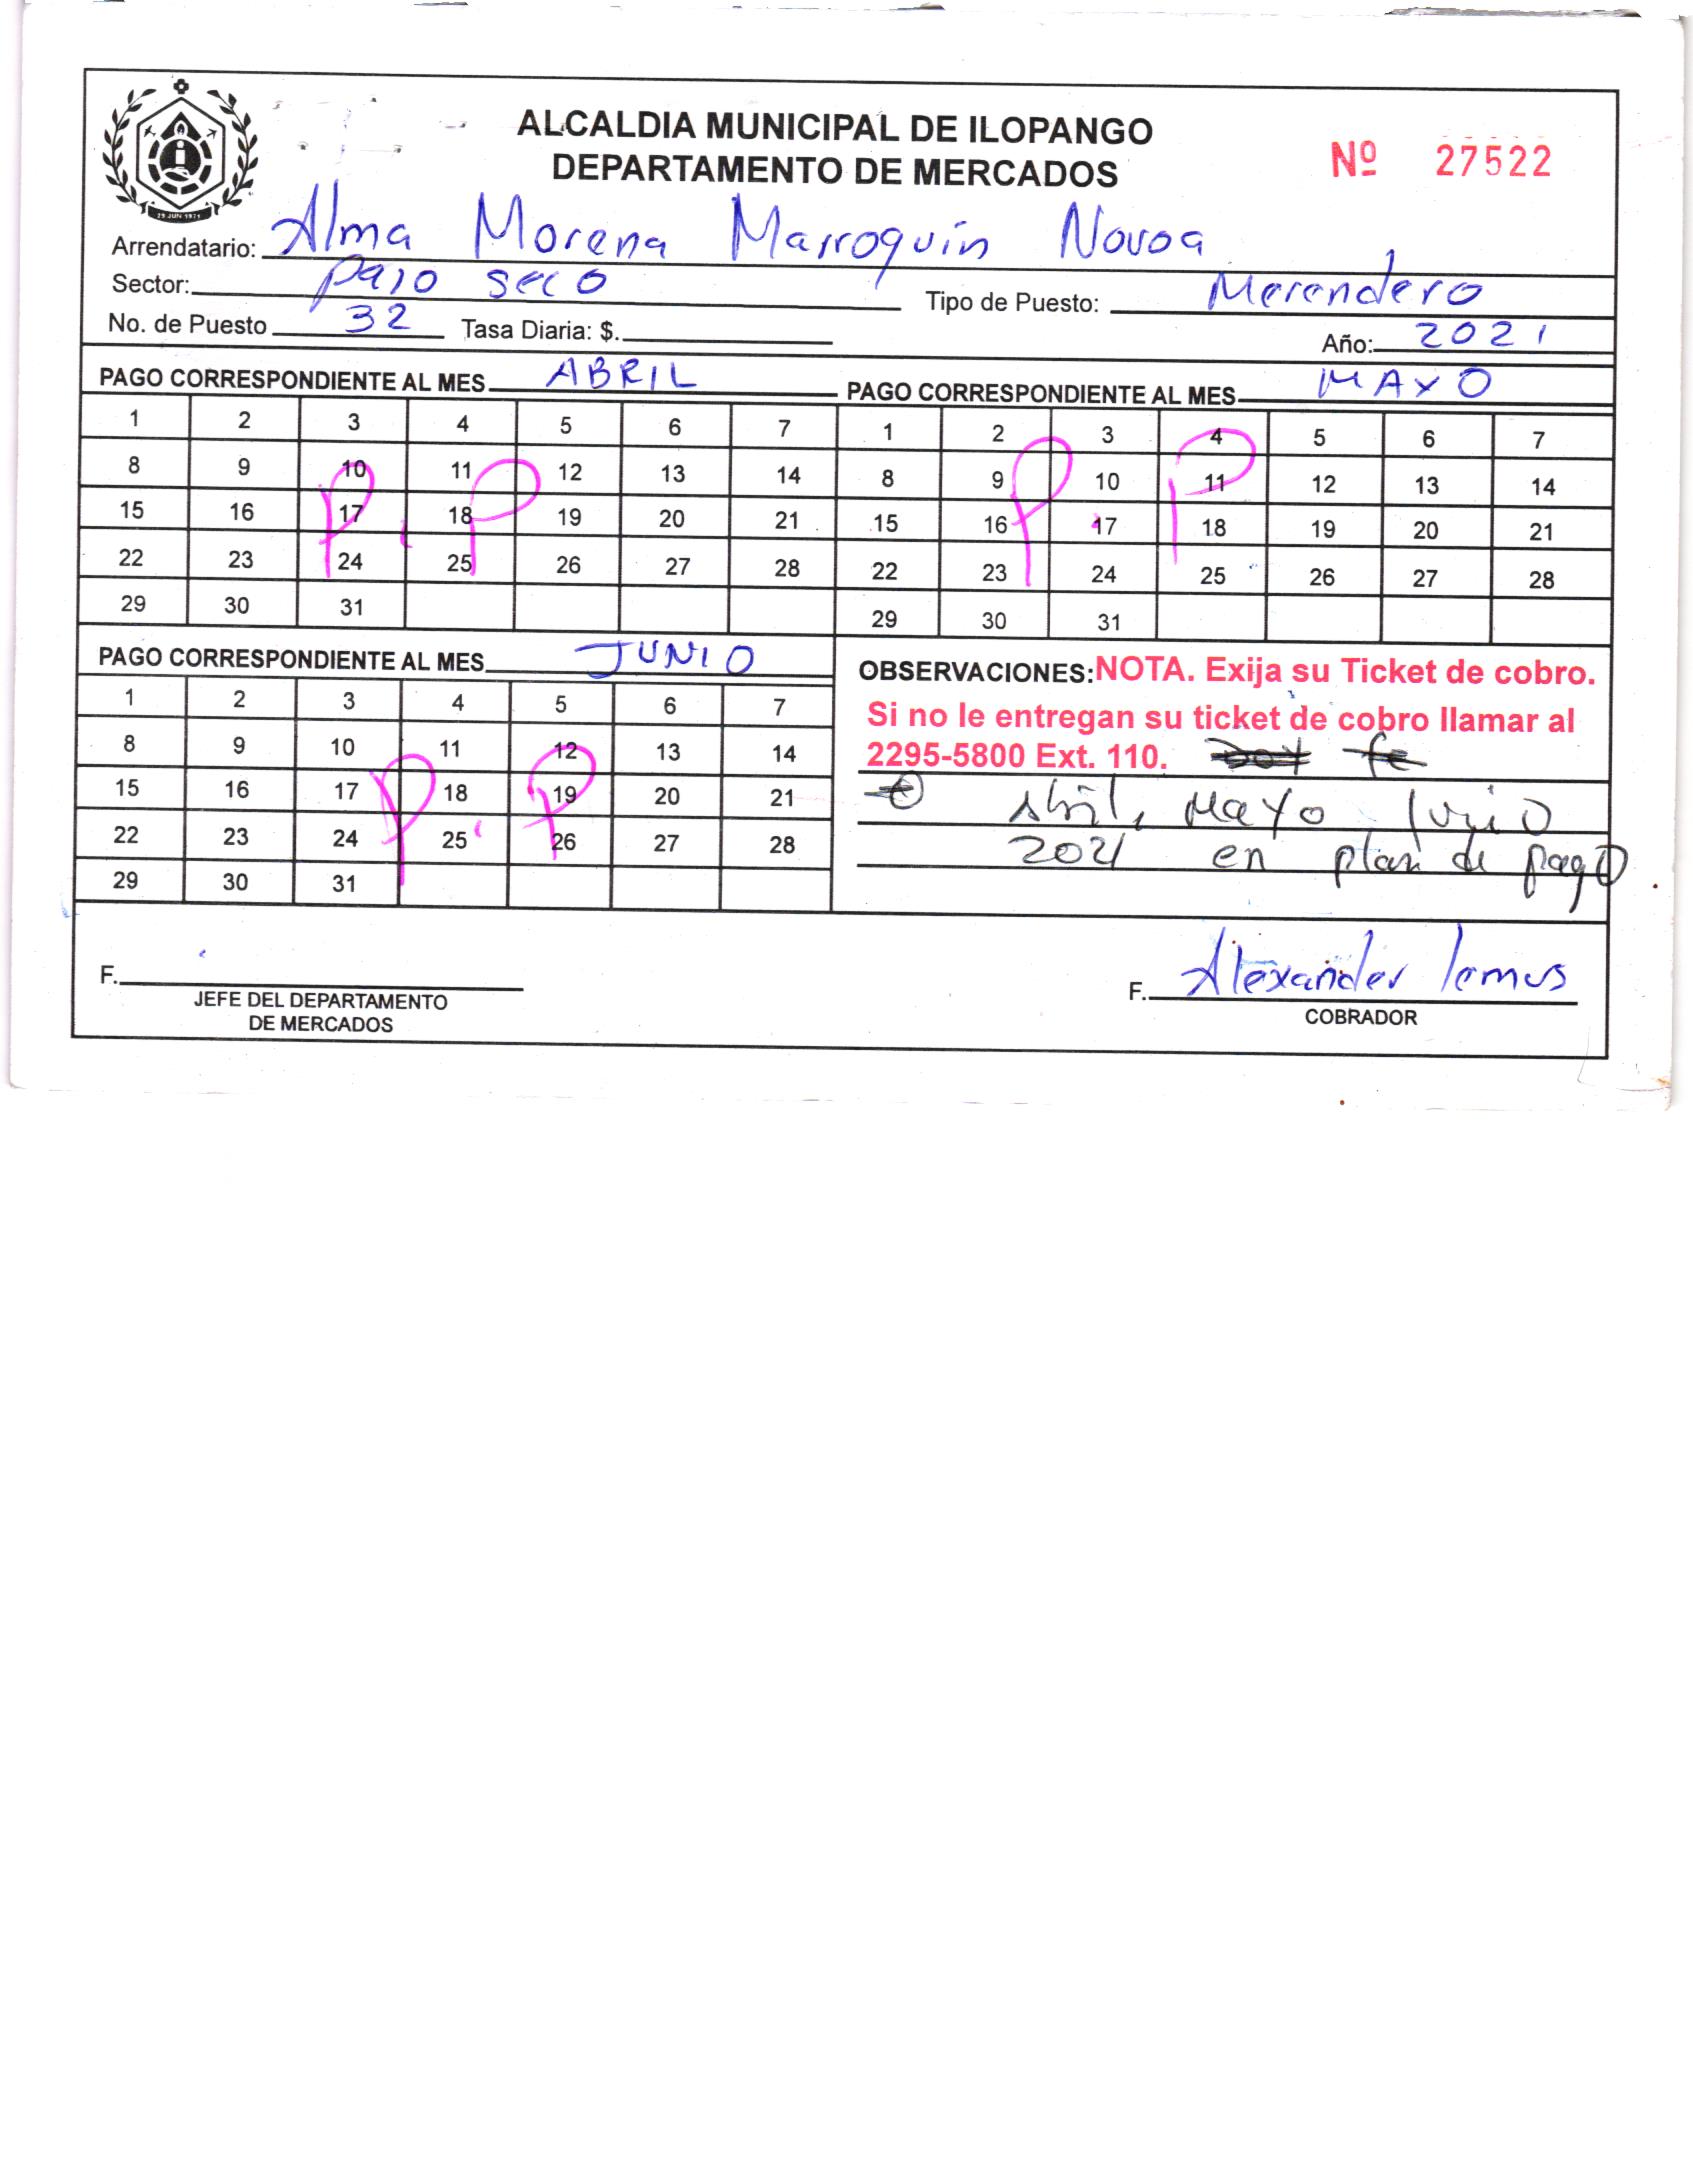 ALCALDIA MUNICIPAL DE ILOPANGO
DEPARTAMENTO DE MERCADOS
Nº 27522
29 JUN 1971
Arrendatario: Alma Morena Marroquín Novoa
Sector: paso seco Tipo de Puesto: Merendero
No. de Puesto 32 Tasa Diaria: $.
Año: 2021
PAGO CORRESPONDIENTE AL MES ABRIL
1 2 3 4 5 6 7
8 9 10 11 12 13 14
15 16 17 18 19 20 21
22 23 24 25 26 27 28
29 30 31
P.P
PAGO CORRESPONDIENTE AL MES MAYO
1 2 3 4 5 6 7
8 9 10 11 12 13 14
15 16 17 18 19 20 21
22 23 24 25 26 27 28
29 30 31
P.P
PAGO CORRESPONDIENTE AL MES JUNIO
1 2 3 4 5 6 7
8 9 10 11 12 13 14
15 16 17 18 19 20 21
22 23 24 25 26 27 28
29 30 31
P.P
OBSERVACIONES: NOTA. Exija su Ticket de cobro.
Si no le entregan su ticket de cobro llamar al
2295-5800 Ext. 110.
Abril, Mayo, Junio
2021 en plan de pago
F.
JEFE DEL DEPARTAMENTO
DE MERCADOS
F. Alexander lemus
COBRADOR